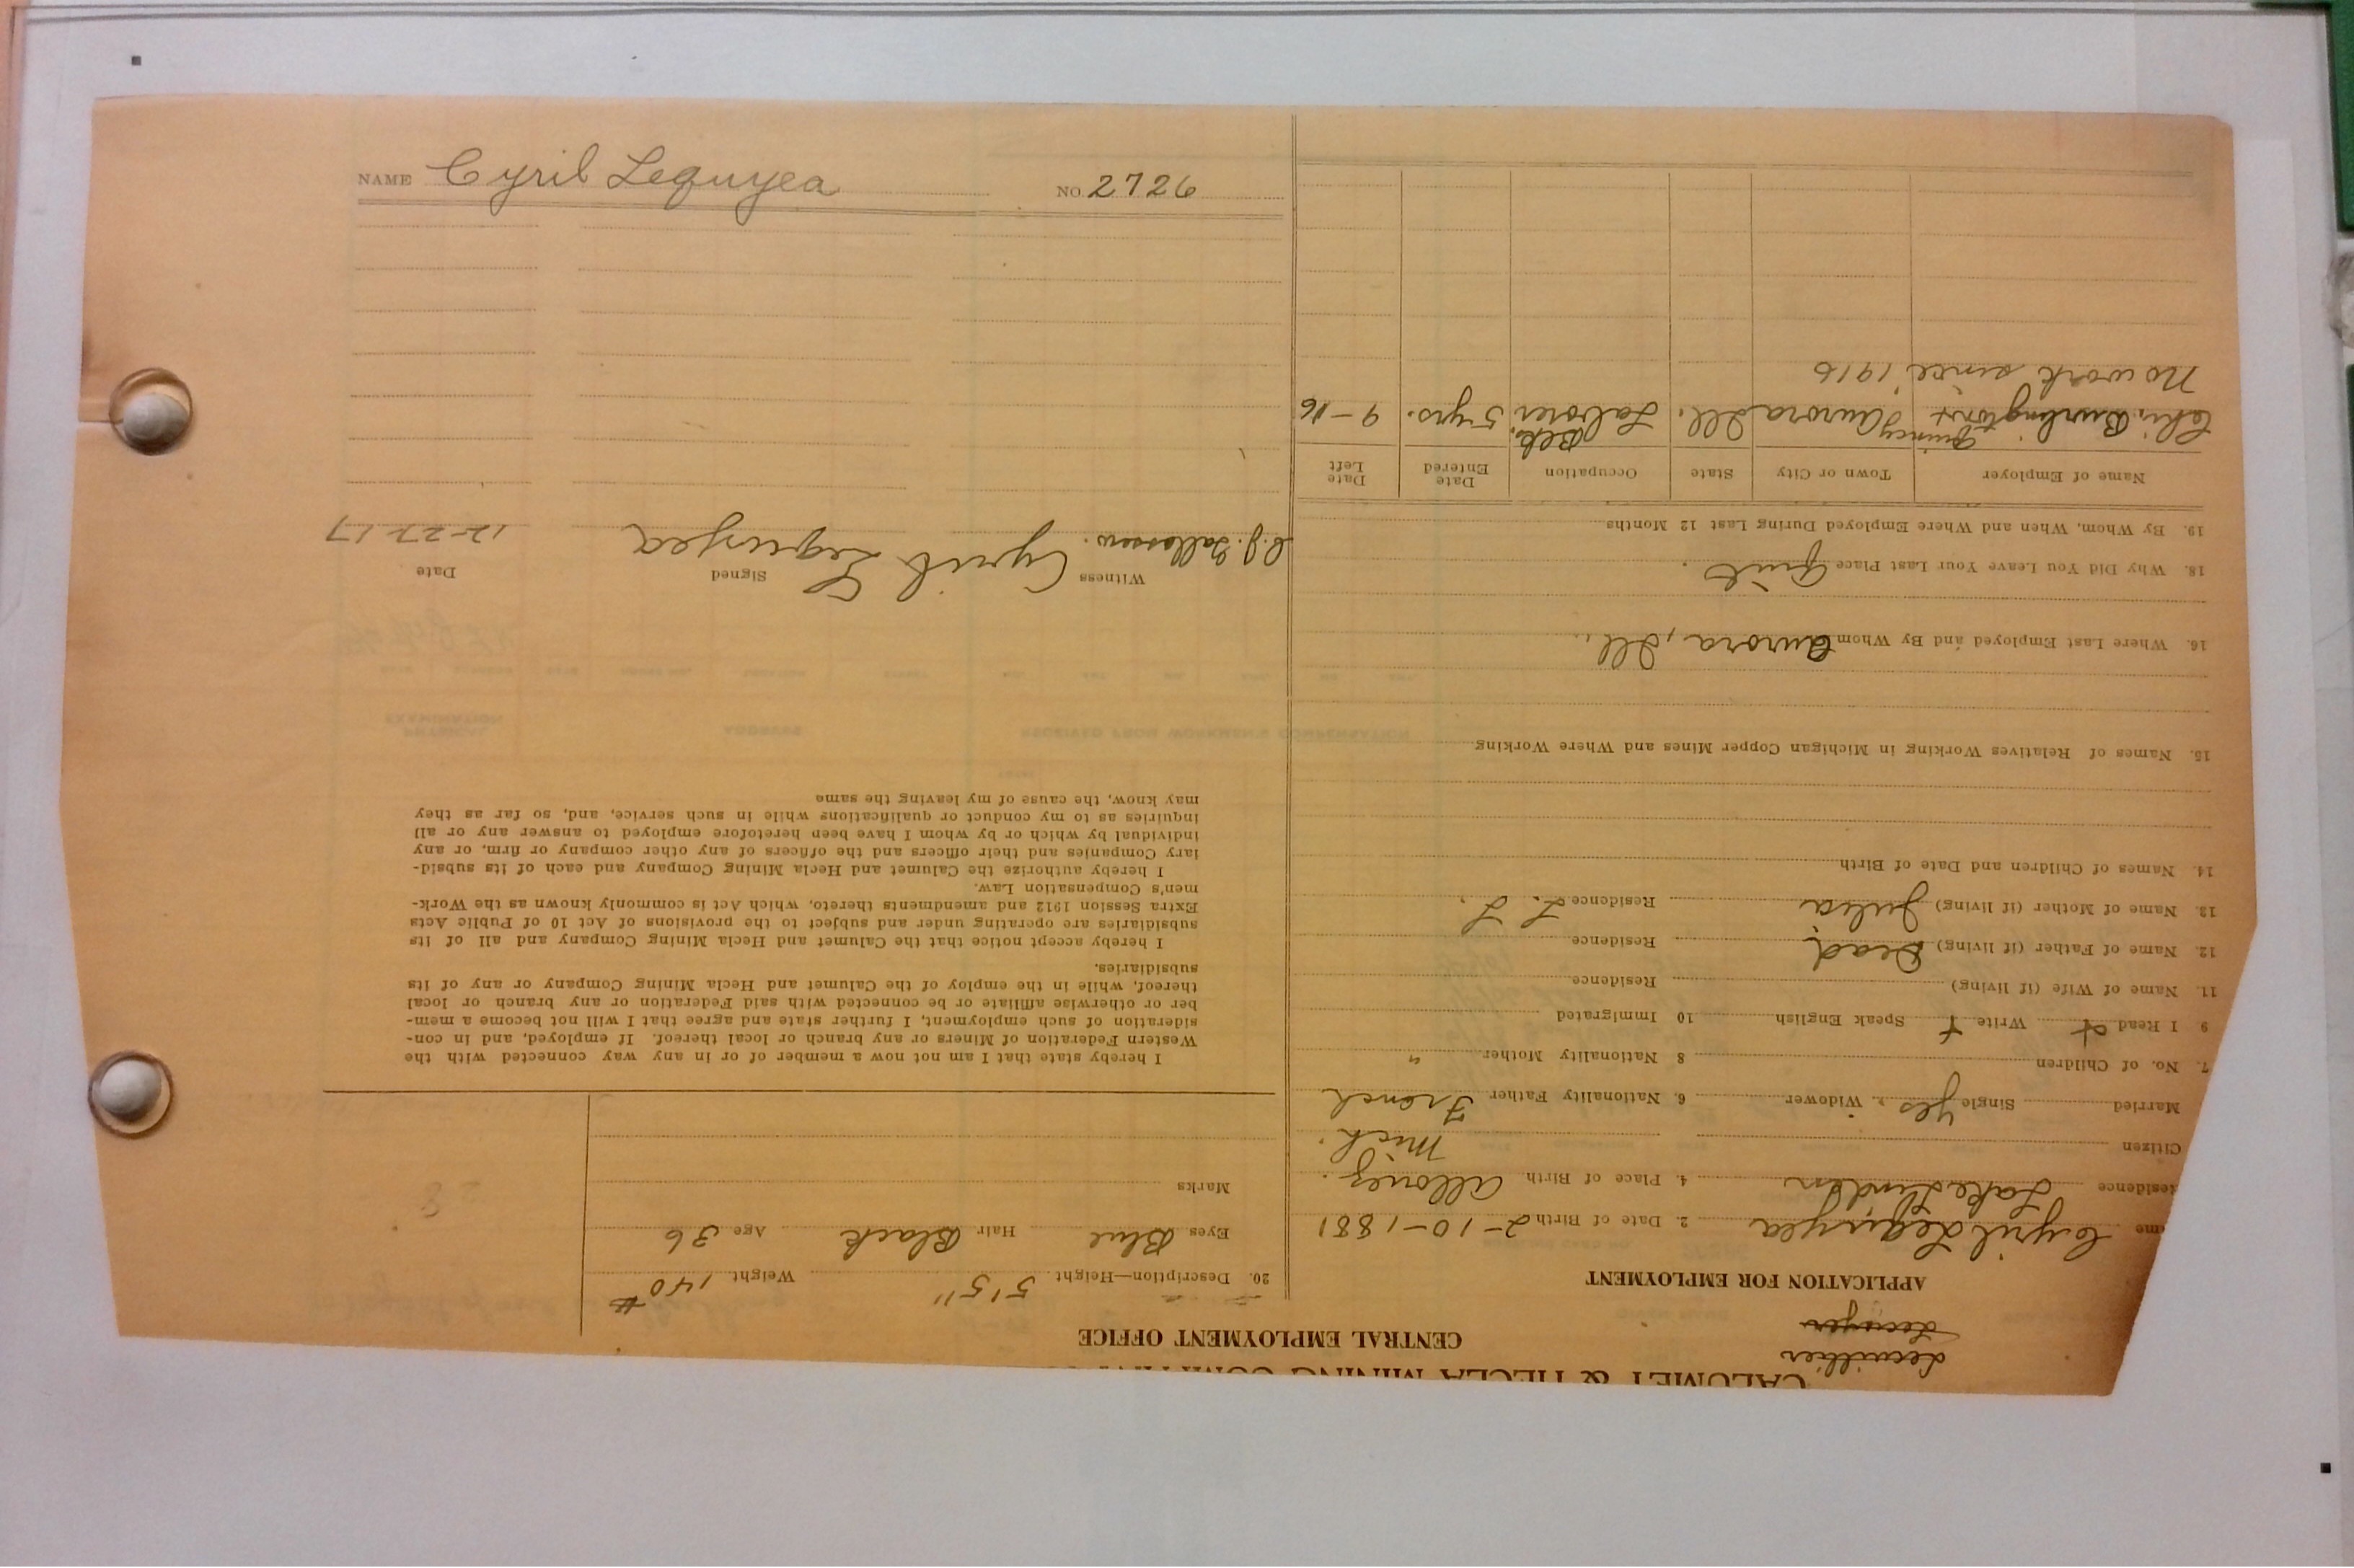 NAME Cyril Lequyea NO. 2726
CALUMET & HECLA MINING
CENTRAL EMPLOYMENT OFFICE
APPLICATION FOR EMPLOYMENT
me Cyril Lequyea 2. Date of Birth 2-10-1881
esidence Lake Linden 4. Place of Birth Allouez
Mich.
Citizen
Married Single yes Widower 6. Nationality Father French
7. No. of Children 8 Nationality Mother "
9 I Read Write Speak English 10 Immigrated
11. Name of Wife (if living) Residence
12. Name of Father (if living) Dead Residence
13. Name of Mother (if living) Julia Residence L. L.
14. Names of Children and Date of Birth
15. Names of Relatives Working in Michigan Copper Mines and Where Working
16. Where Last Employed and By Whom Aurora, Ill.
18. Why Did You Leave Your Last Place Quit.
19. By Whom, When and Where Employed During Last 12 Months
Name of Employer Town or City State Occupation Date Entered Date Left
Chi. Burlington & Quincy Aurora Ill. Laborer 5 yrs. 9-16
No work since 1916
20. Description—Height 5'5" Weight 140 #
Eyes Blue Hair Black Age 36
Marks
28
I hereby state that I am not now a member of or in any way connected with the
Western Federation of Miners or any branch or local thereof. If employed, and in con-
sideration of such employment, I further state and agree that I will not become a mem-
ber or otherwise affiliate or be connected with said Federation or any branch or local
thereof, while in the employ of the Calumet and Hecla Mining Company or any of its
subsidiaries.
I hereby accept notice that the Calumet and Hecla Mining Company and all of its
subsidiaries are operating under and subject to the provisions of Act 10 of Public Acts
Extra Session 1912 and amendments thereto, which Act is commonly known as the Work-
men's Compensation Law.
I hereby authorize the Calumet and Hecla Mining Company and each of its subsid-
iary Companies and their officers and the officers of any other company or firm, or any
individual by which or by whom I have been heretofore employed to answer any or all
inquiries as to my conduct or qualifications while in such service, and, so far as they
may know, the cause of my leaving the same
Witness Signed Date
Cyril Lequyea 12-27-17